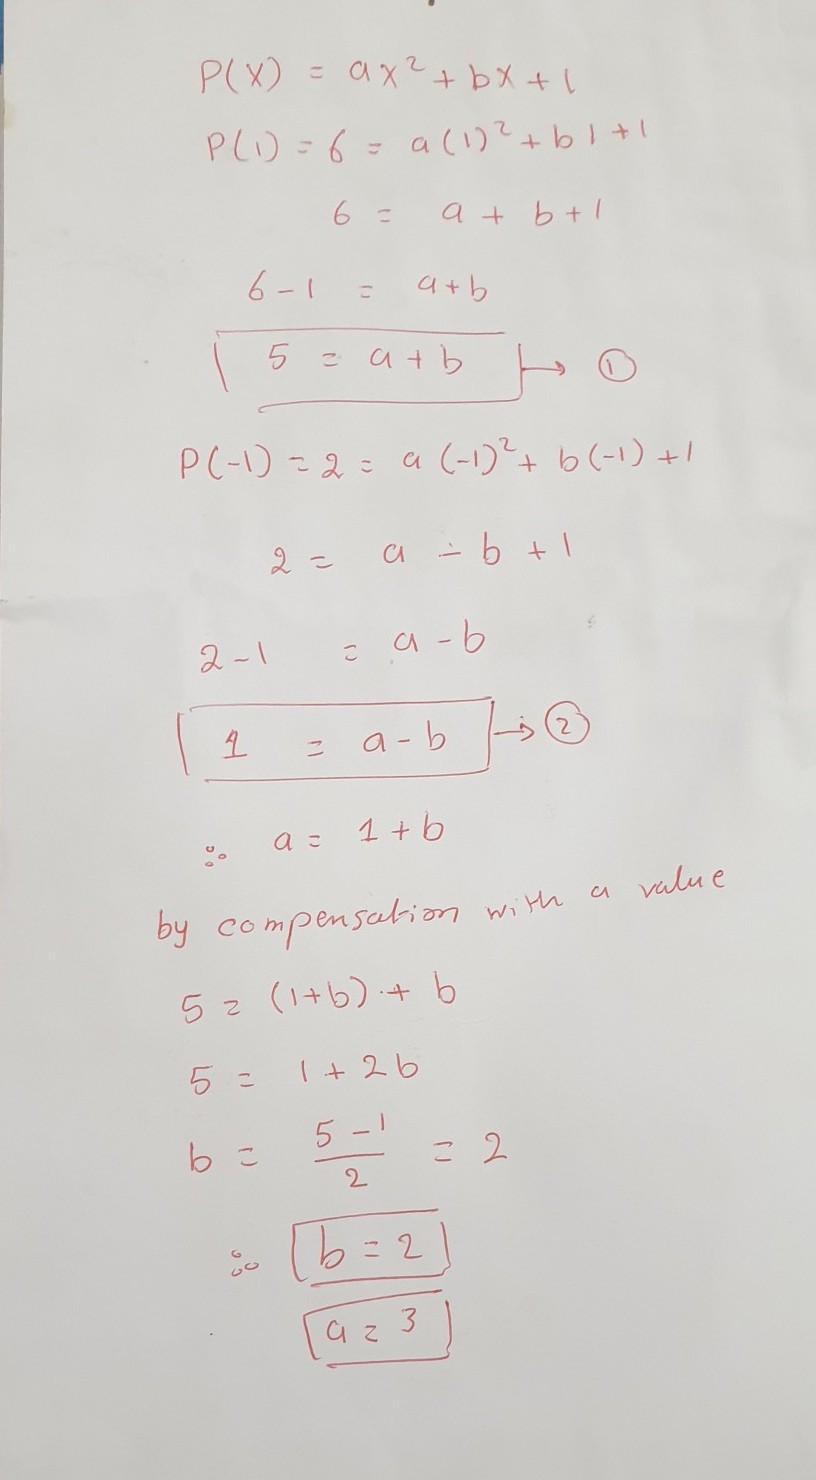 P(X) = ax² + bx + 1
P(1) = 6 = a(1)² + b1 + 1
6 = a + b + 1
6 - 1 = a + b
5 = a + b → ①
P(-1) = 2 = a (-1)² + b(-1) + 1
2 = a - b + 1
2 - 1 = a - b
1 = a - b → ②
∴ a = 1 + b
by compensation with a value
5 = (1+b) + b
5 = 1 + 2b
b = \frac{5-1}{2} = 2
∴ b = 2
a = 3